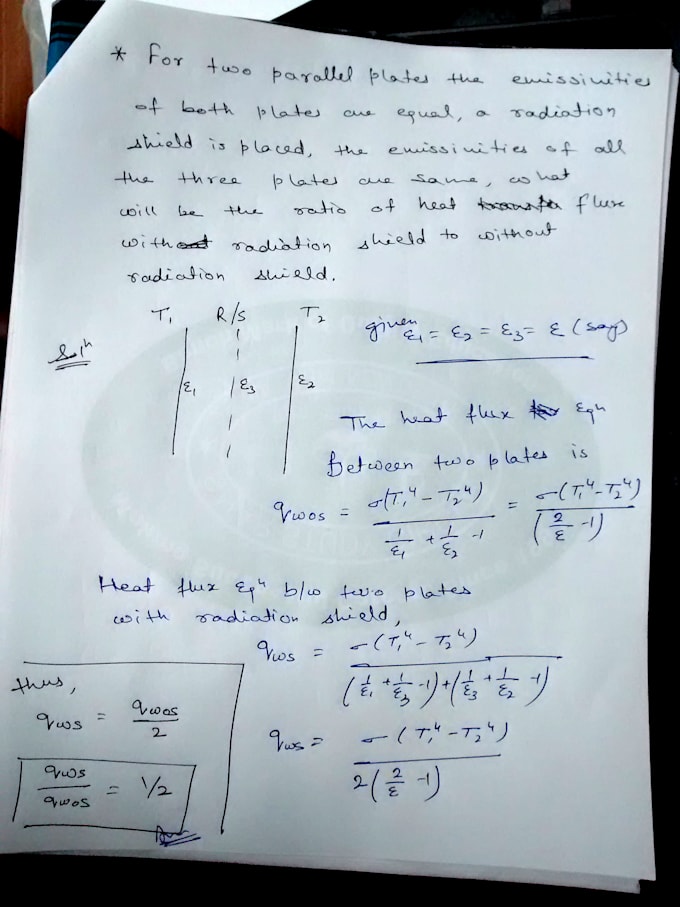 * For two parallel plates the emissinities
of both plates are equal, a radiation
shield is placed, the emissinities of all
the three plates are same, what
will be the ratio of heat transfer flux
without radiation shield to without
radiation shield.
Solⁿ
T₁ R/S T₂
ε₁ ε₃ ε₂
given ε₁ = ε₂ = ε₃ = ε (say)
The heat flux for Eqⁿ
Between two plates is
qwos = σ(T₁⁴ - T₂⁴) / (1/ε₁ + 1/ε₂ -1) = σ(T₁⁴ - T₂⁴) / (2/ε -1)
Heat flux Eqⁿ b/w two plates
with radiation shield,
qws = σ(T₁⁴ - T₂⁴) / (1/ε₁ + 1/ε₃ -1) + (1/ε₃ + 1/ε₂ -1)
qws = σ(T₁⁴ - T₂⁴) / 2(2/ε -1)
thus,
qws = qwos / 2
qws / qwos = 1/2
Ans